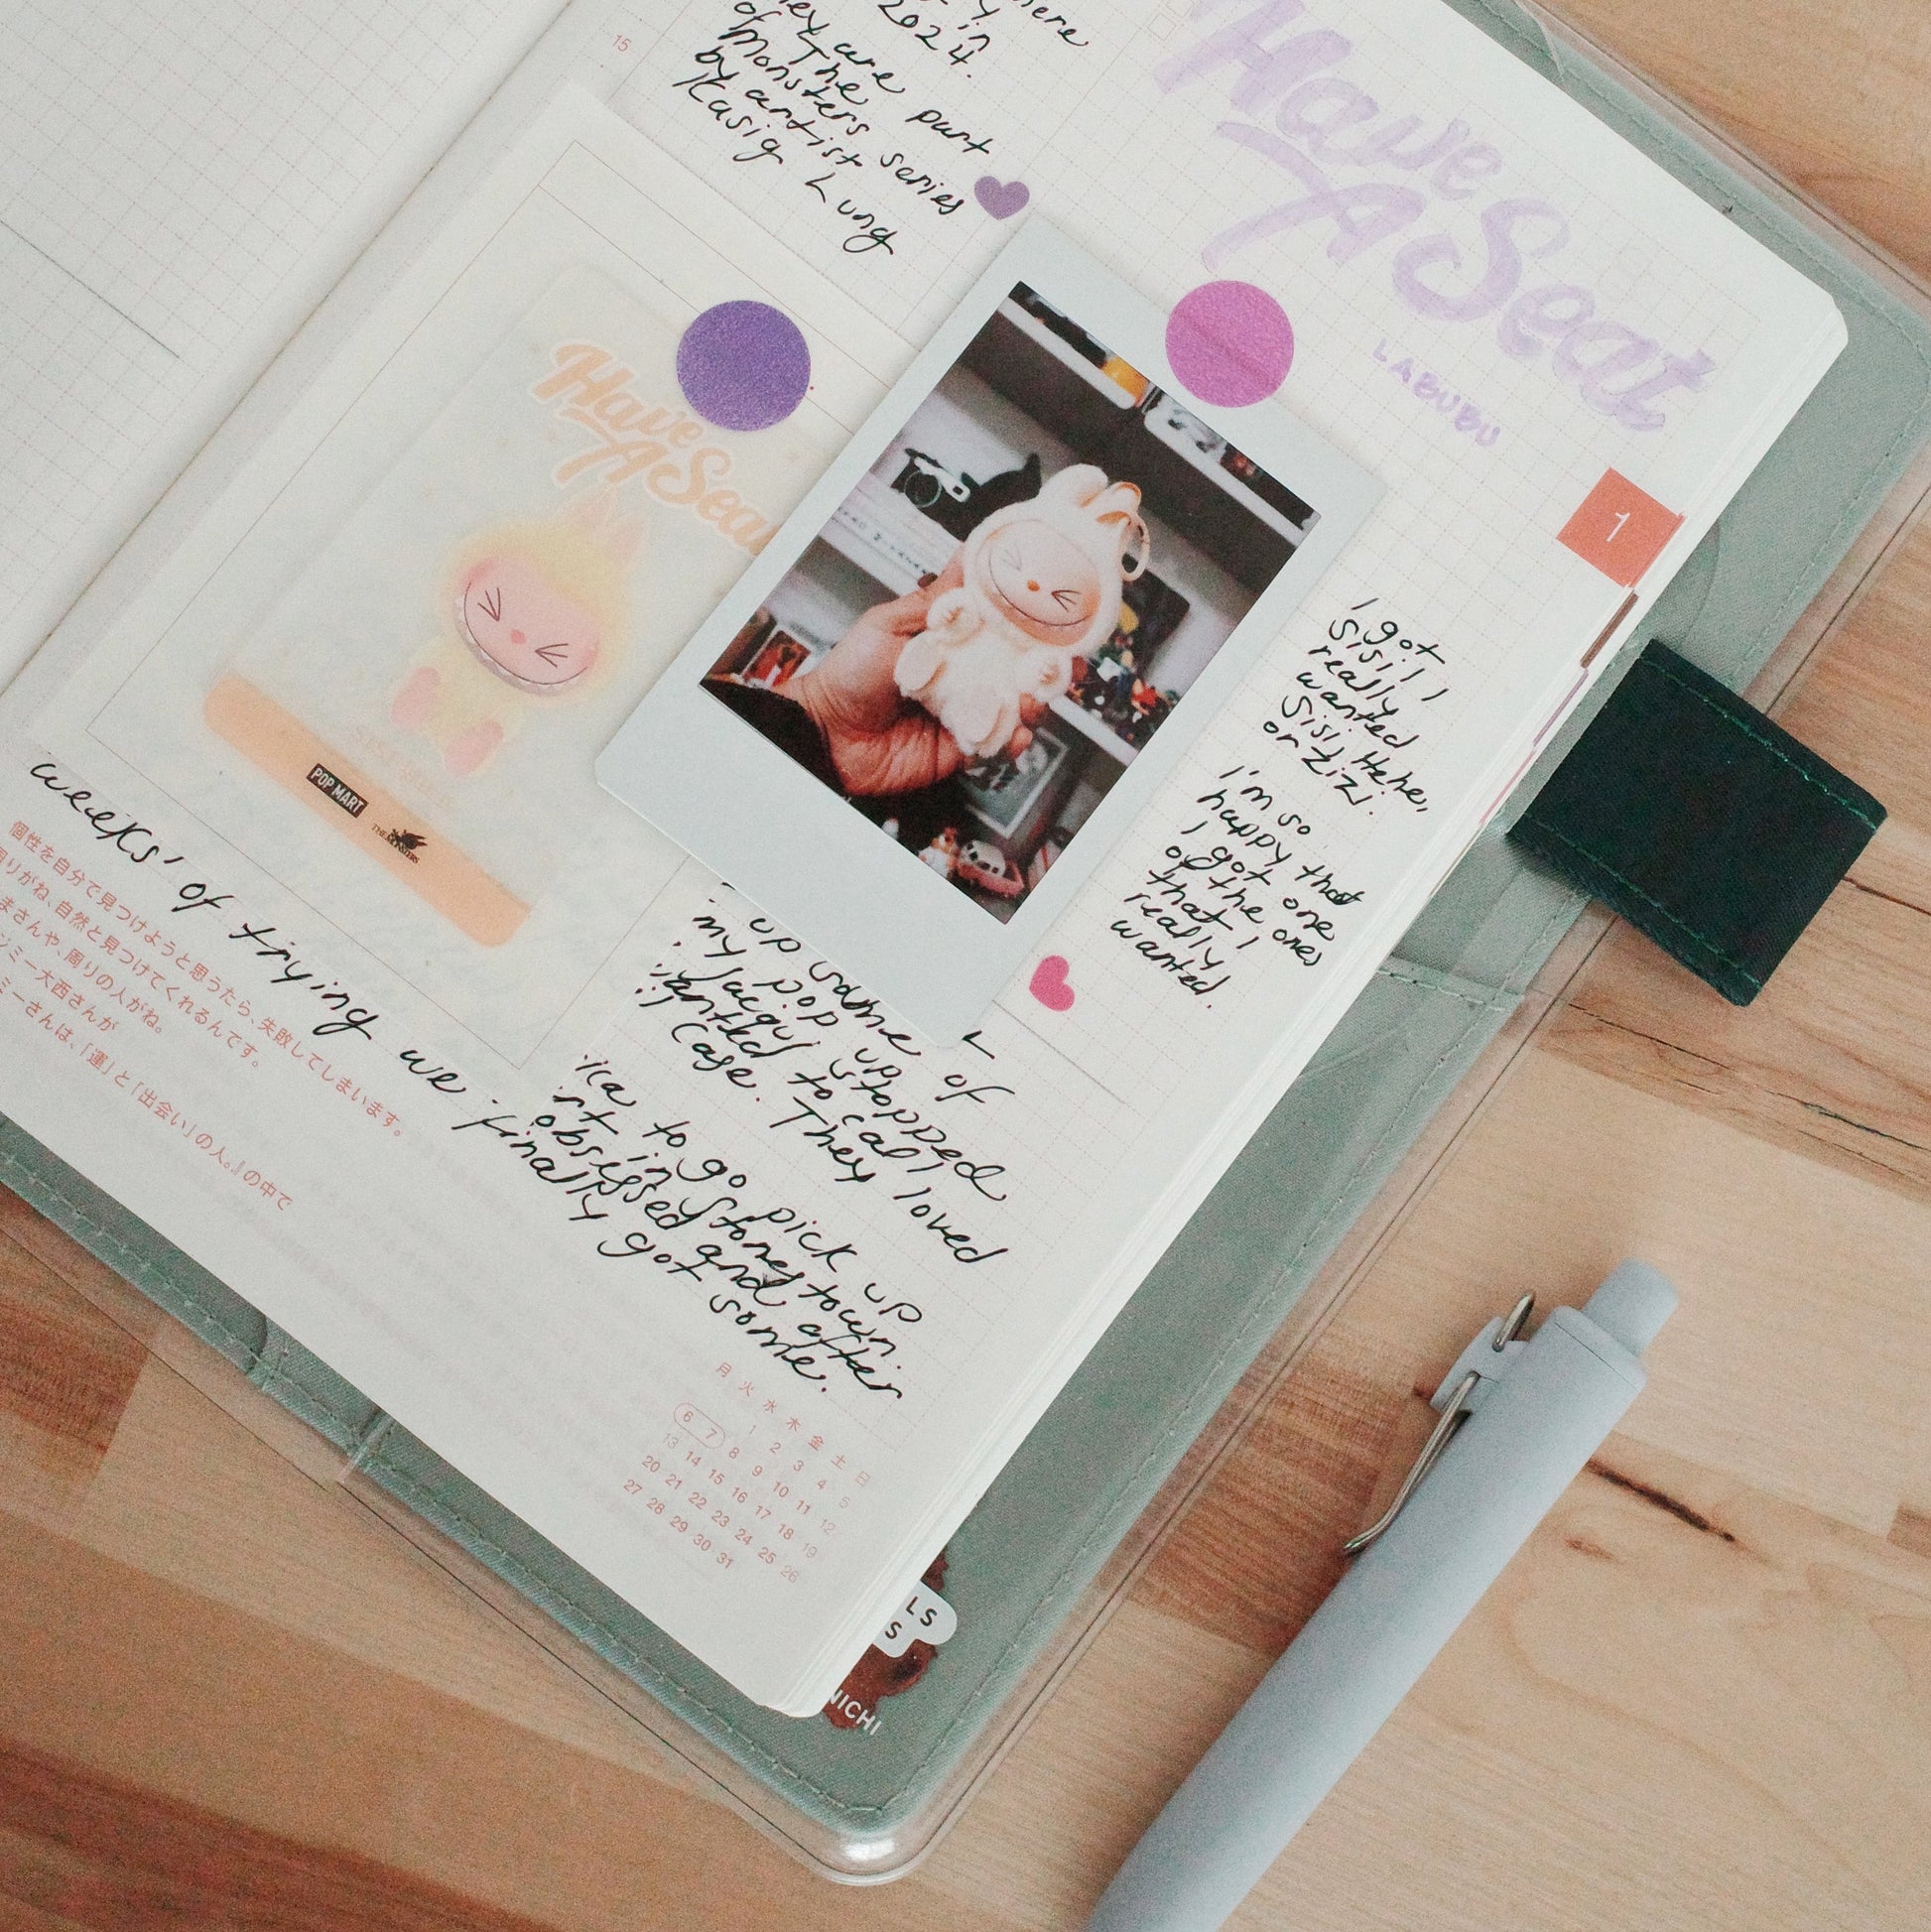 here
y in
2024.
ey are part
of The
Monsters series
by artist
Kasig Lung
15
Have
A Seat
LABUBU
1
Have
A Sea
SISI
POP MART
THE MONSTERS
I got
Sisi! I
really
wanted
Sisi. Hehe,
or Zizi.
I'm so
happy that
I got one
of the ones
that I
really
wanted.
up some of
my pop up, stopped
Jacqui to call
anted
Case. They loved
ica to go pick up
rt in Stonestown.
obsessed and after
finally got some.
weeks' of trying we
個性を自分で見つけようと思うたら、失敗してしまいます。
周りがね、自然と見つけてくれるんです。
まさんや、周りの人がね。
ジミー大西さんが
ミーさんは、「運」と「出会い」の人。』の中で
月 火 水 木 金 土 日
1 2 3 4 5
6 7 8 9 10 11 12
13 14 15 16 17 18 19
20 21 22 23 24 25 26
27 28 29 30 31
LS
S
NICHI